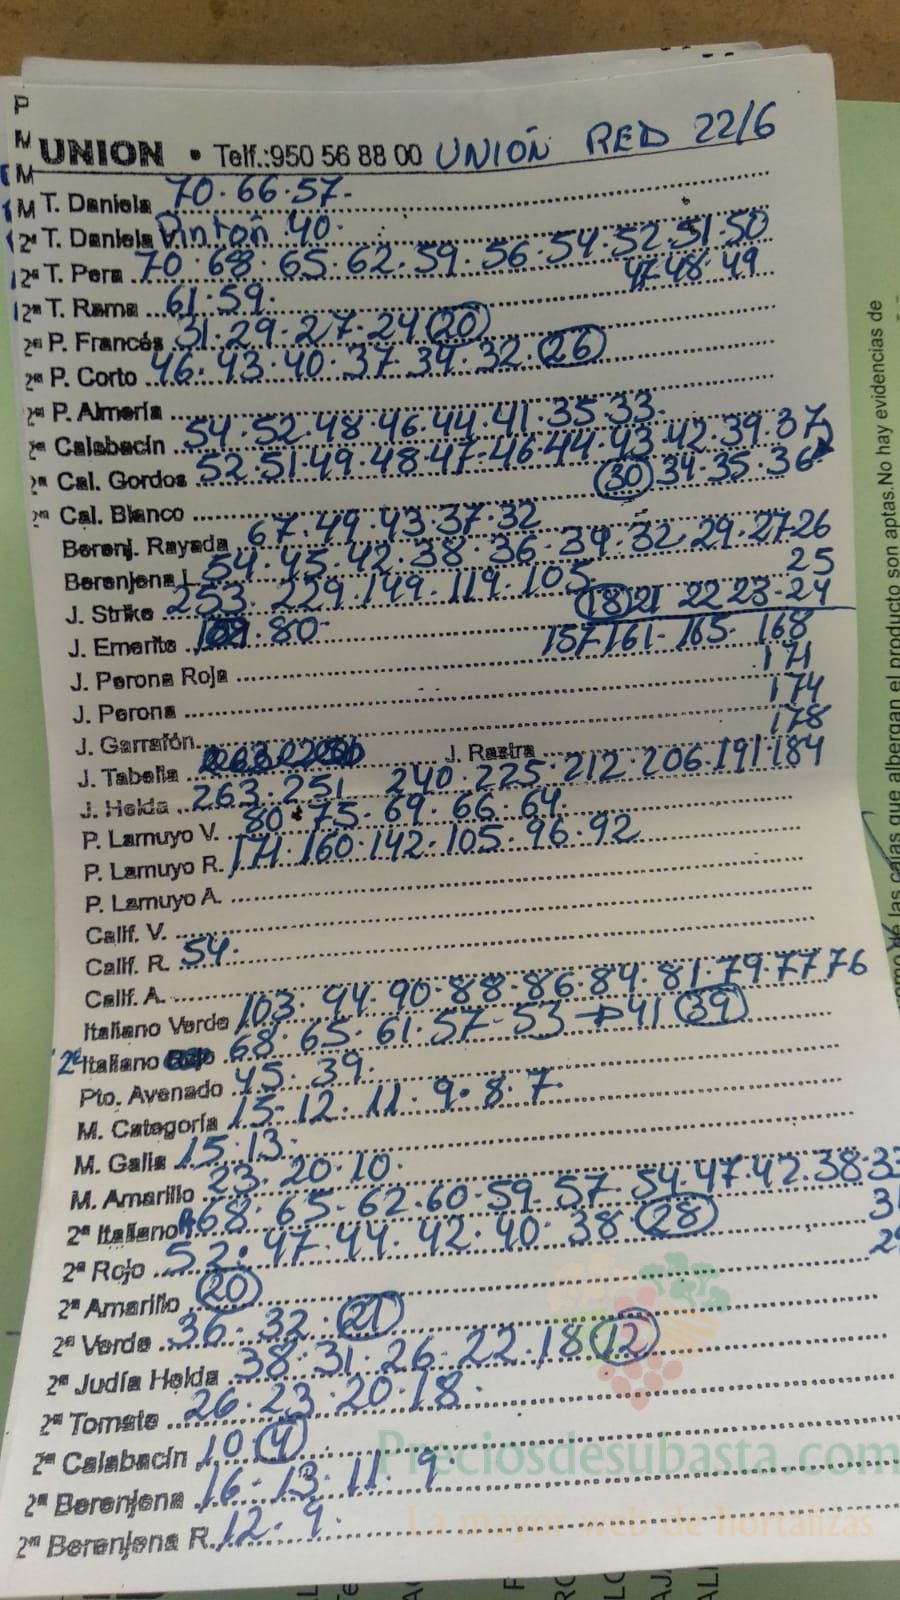 UNION • Telf.:950 56 88 00 UNIÓN RED 22/6
T. Daniela 70.66.57.
2ª T. Daniela Pinton 40.
2ª T. Pera 70.68.65.62.59.56.54.52.51.50
47.48.49
2ª T. Rama 61.59.
2ª P. Francés 31.29.27.24 (20)
2ª P. Corto 46.43.40.37.34.32.(26)
2ª P. Almería
2ª Calabacín 54.52.48.46.44.41.35.33.
2ª Cal. Gordos 52.51.49.48.47.46.44.43.42.39.37
(30) 34.35.36
2ª Cal. Blanco
Berenj. Rayada 67.49.43.37.32
Berenjena L. 54.45.42.38.36.34.32.29.27.26
25
J. Strike 253.229.149.119.105
(18) 21 22 23.24
J. Emerite 80
157 161. 165. 168
J. Perona Roja
171
J. Perona
174
J. Garrafón
178
J. Tabella J. Rastra
J. Helda 263.251 240.225.212.206.191.184
P. Lamuyo V. 80.75.69.66.64.
P. Lamuyo R. 171.160.142.105.96.92
P. Lamuyo A.
Calif. V.
Calif. R. 54.
Calif. A.
Italiano Verde 103.94.90.88.86.84.81.79.77 76
2ª Italiano 68.65.61.57.53→41 (39)
Pto. Avenado 45.39.
M. Categoría 15.12.11.9.8.7.
M. Galia 15.13.
M. Amarillo 23.20.10.
2ª Italiano 68.65.62.60.59.57.54.47.42.38.33
2ª Rojo 52.47.44.42.40.38 (28)
2ª Amarillo (20)
2ª Verde 36.32.(21)
2ª Judía Helda 38.31.26.22.18 (12)
2ª Tomate 26.23.20.18.
2ª Calabacín 10 (4)
2ª Berenjena 16.13.11.9.
2ª Berenjena R. 12.9.
Preciosdesubasta.com
La mayor web de hortalizas
las cajas que albergan el producto son aptas. No hay evidencias de